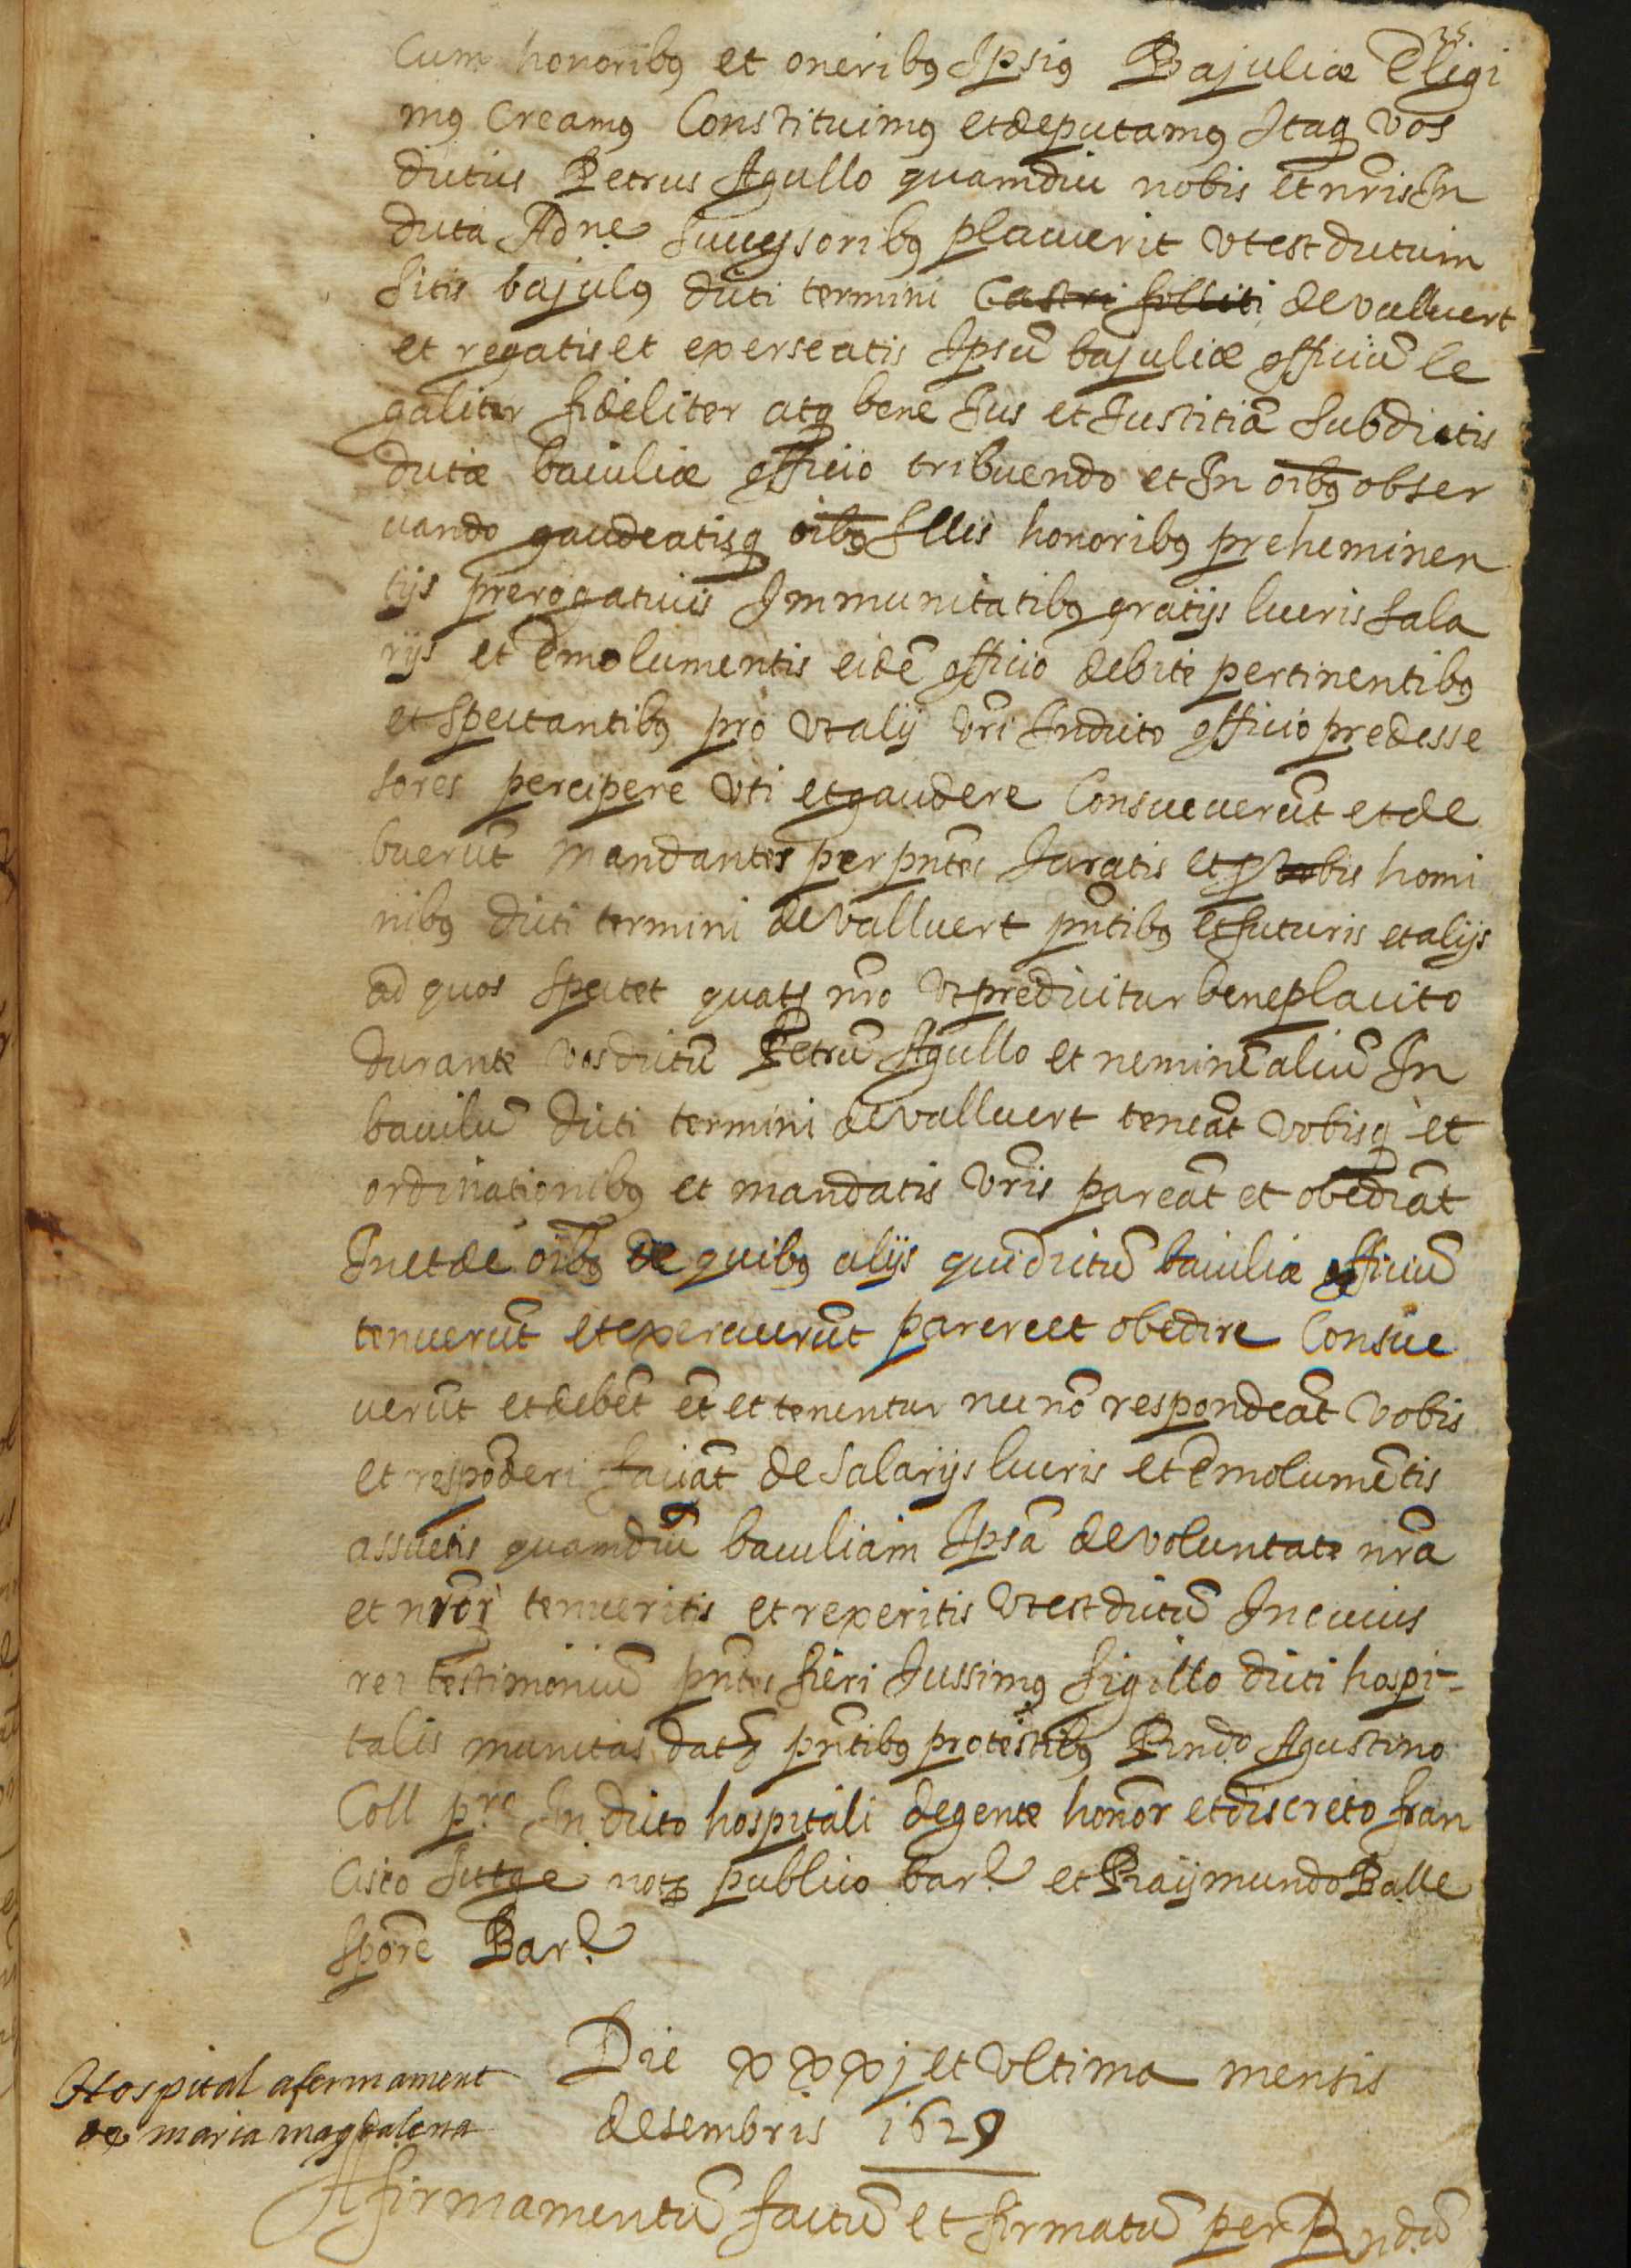 25.
Cum honoribꝰ et oneribꝰ Ipsiꝰ Bajuliæ Eligi
mꝰ Creamꝰ Constituimꝰ et deputamꝰ Itaq vos
dictus Petrus Agullo quamdiu nobis et nr̃is In
dicta Adn.e successoribꝰ placuerit vt est dictum
sitis bajulꝰ dicti termini Castri folliti de vallvert
et regatis et exerseatis Ipsũ bajuliæ officiũ le
galiter fideliter atq bene Jus et Justitiã subdictis
dictæ baiuliæ officio tribuendo et In oĩbꝰ obser
uando gaudeatisq oĩbꝰ Illis honoribꝰ preheminen
tijs prerogatiuis Immunitatibꝰ gratijs lucris sala
rijs et Emolumentis eidẽ officio debite pertinentibꝰ
et spectantibꝰ pro vt alij vr̃i In dicto officio predesse
sores percipere vti et gaudere Consueuerũt et de
buerũt mandantes per pñtes Juratis et probis homi
nibꝰ dicti termini de vallvert pñtibꝰ et futuris et alijs
ad quos spectet quatꝰ nr̃o vt predicitur beneplacito
durante vos dictũ Petrũ Agullo et neminẽ aliũ In
baiulũ dicti termini de vallvert teneãt vobisq et
ordinationibꝰ et mandatis vr̃is pareãt et obediãt
In et de oĩbꝰ de quibꝰ alijs qui dictũ baiuliæ officiũ
tenuerũt et exercuerũt parere et obedire Consue
uerũt et debẽt et et tenentur nec nõ respondeãt vobis
et respõderi faciãt de salarijs lucris et Emolumẽtis
assuetis quamdiũ baiuliam Ipsã de voluntate nr̃a
et nr̃or tenueritis et rexeritis vt est dictũ In cuius
rei testimoniũ pñtes fieri Jussimꝰ sigillo dicti hospi-
talis munitas datꝫ pñtibꝰ pro testibꝰ Rndo Agustino
Coll pre In dicto hospitali degente honor et discreto fran
cisco Jutge notꝫ publico bar.e et Raijmundo Balle
spõre Bar.e
Die xxxj et vltima mensis
desembris 1629
Hospital afermament
de maria magdalena
Afirmamentũ factũ et firmatũ per Rndũ